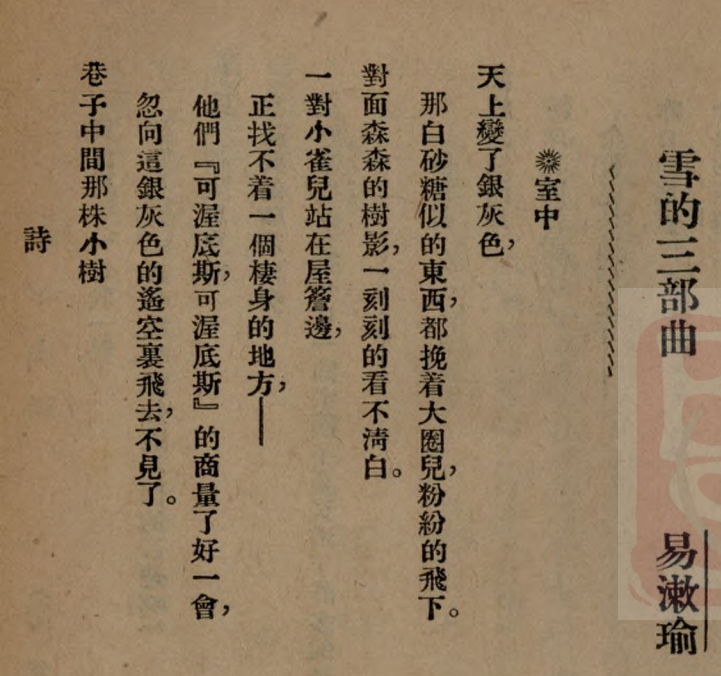 雪的三部曲
易漱瑜
※室中
天上變了銀灰色，
那白砂糖似的東西，都挽着大圈兒，粉紛的飛下。
對面森森的樹影，一刻刻的看不淸白。
一對小雀兒站在屋簷邊，
正找不着一個棲身的地方，——
他們『可渥底斯，可渥底斯』的商量了好一會，
忽向這銀灰色的遙空裏飛去，不見了。
巷子中間那株小樹
詩